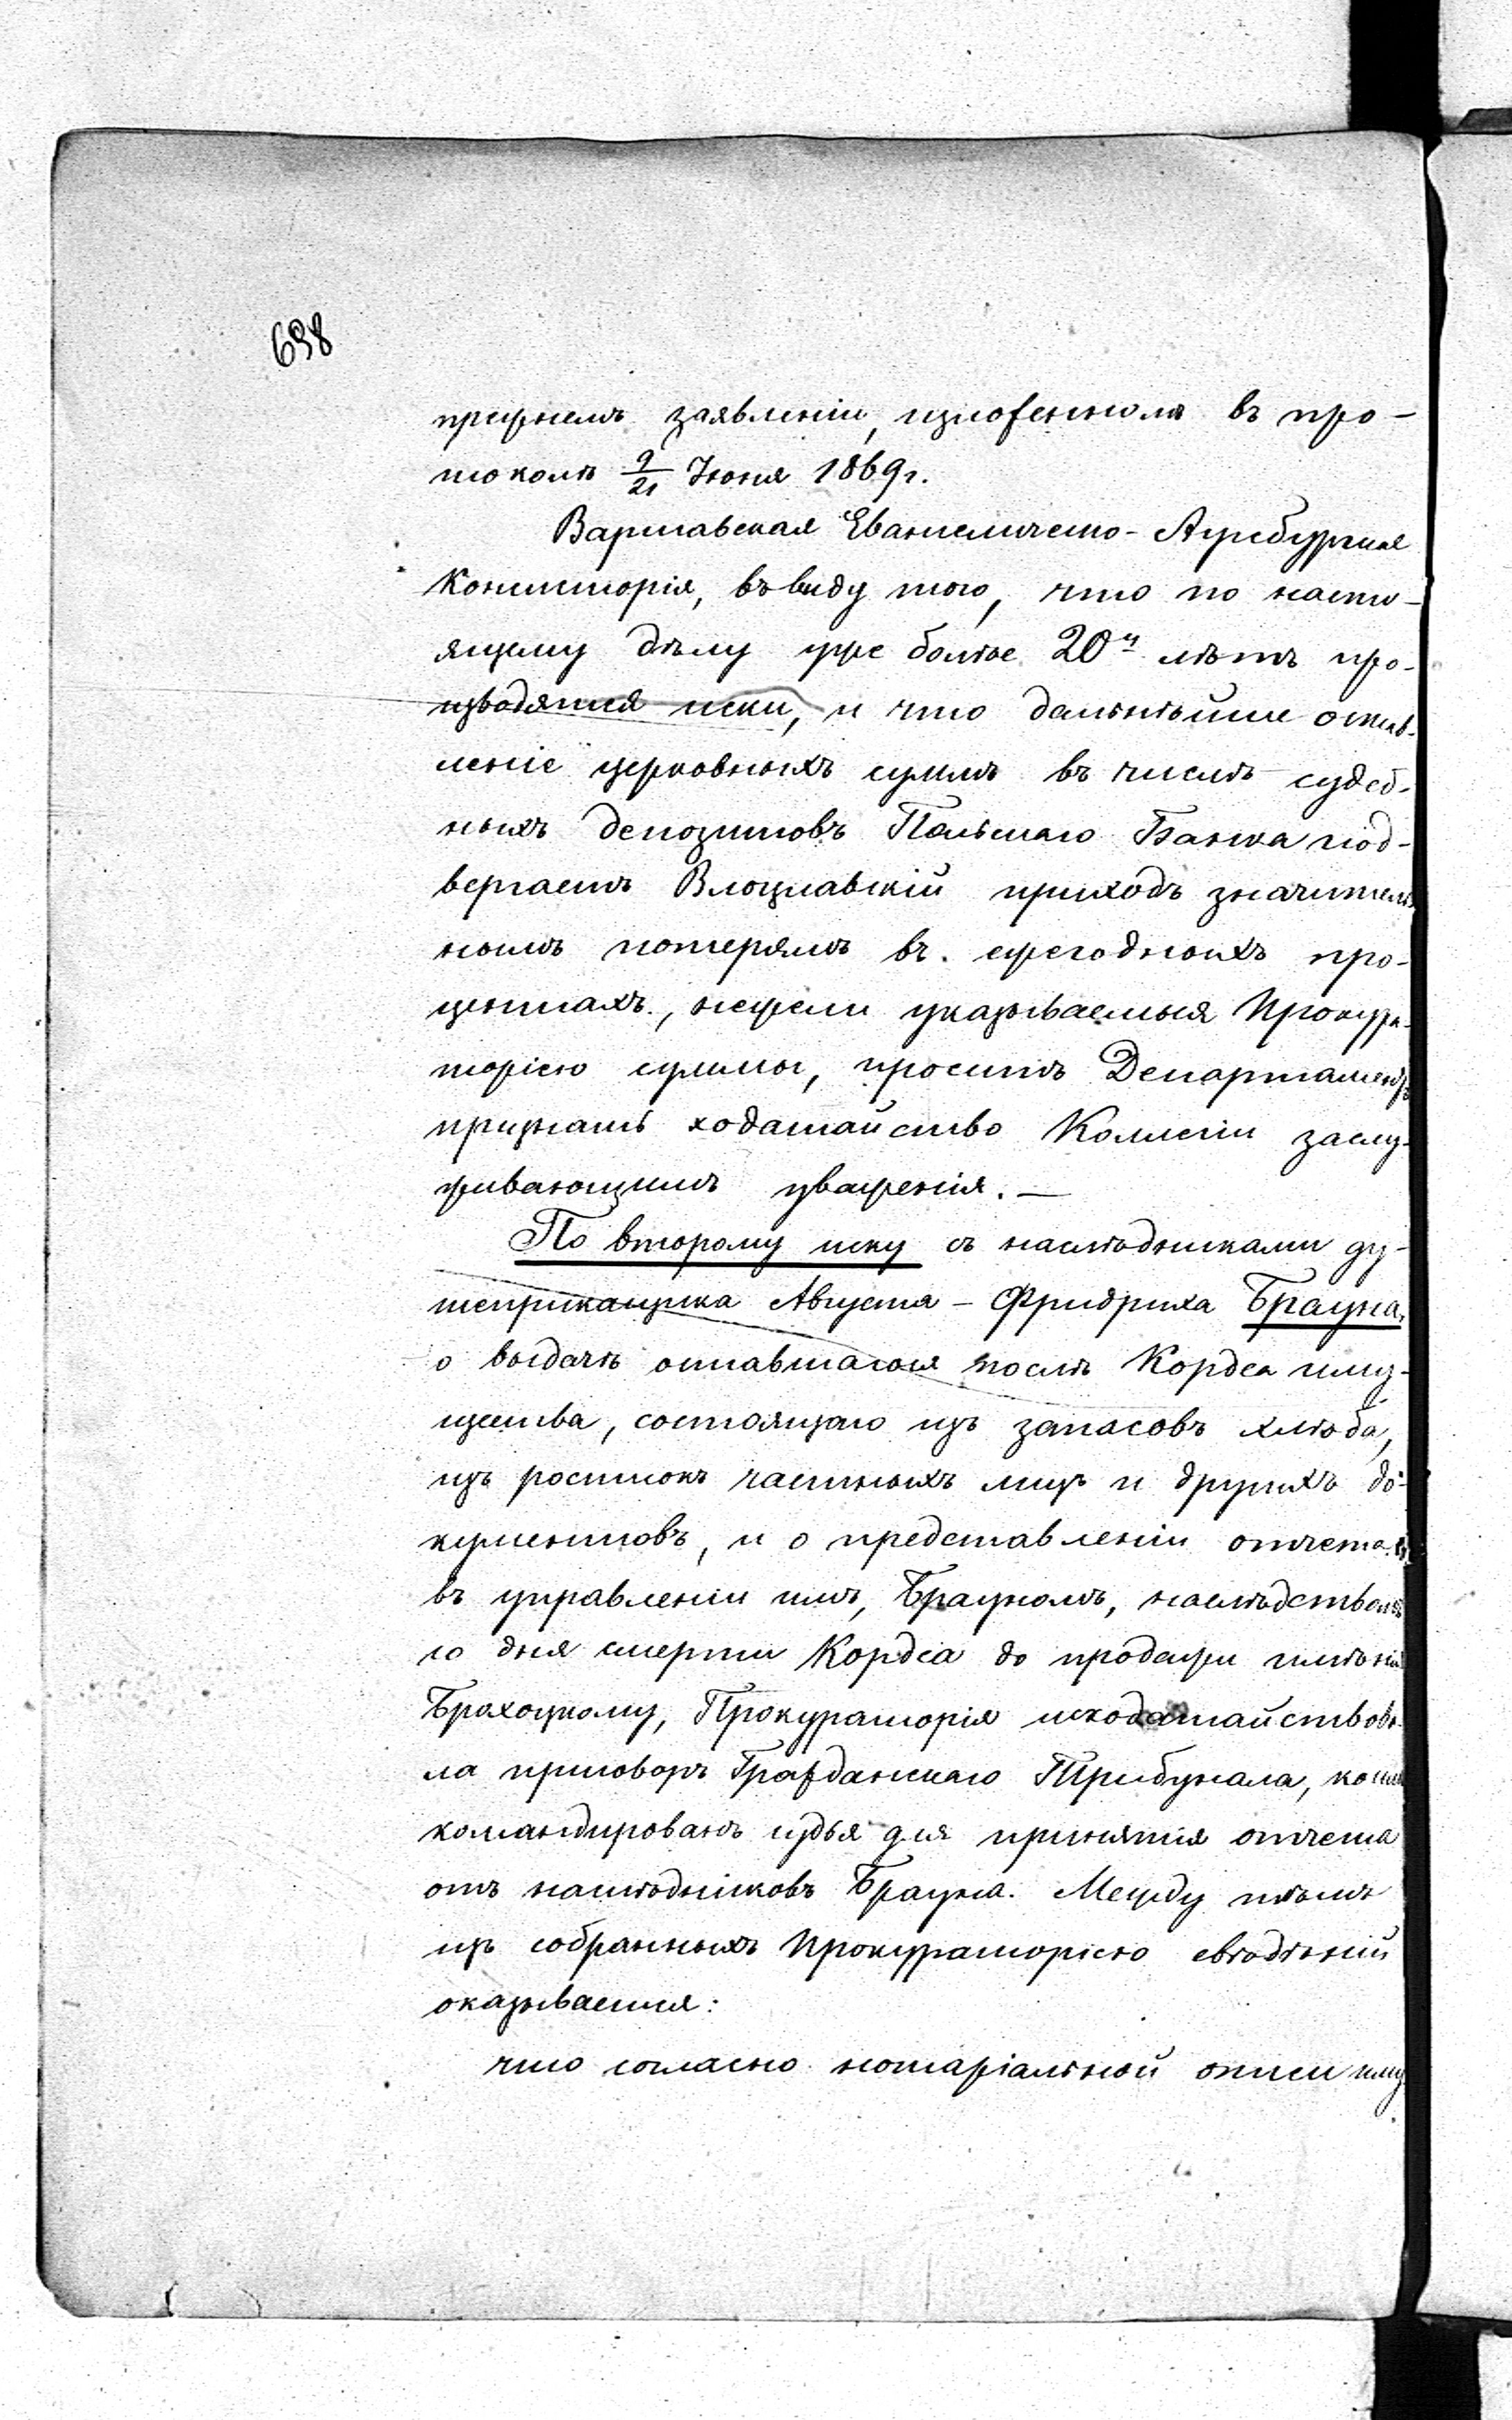 698
прежнемъ заявленіи, изложенномъ въ про-
токолѣ 9/21 Іюня 1869 г.
Варшавская Евангелическо-Аугсбургская
Консисторія, въ виду того, что по насто-
ящему дѣлу уже болѣе 20и лѣтъ про-
изводятся иски, и что дальнѣйшее остав-
леніе церковныхъ суммъ въ числѣ судеб-
ныхъ депозитовъ Польскаго Банка под-
вергаетъ Влоцлавскій приходъ значитель-
нымъ потерямъ въ ежегодныхъ про-
центахъ, нежели указываемыя Прокура-
торіею суммы, проситъ Департаментъ
признать ходатайство Коллегіи заслу-
живающимъ уваженія. —
По второму иску съ наслѣдниками ду-
шеприкащика Августа-Фридриха Брауна,
о выдачѣ оставшагося послѣ Кордса иму-
щества, состоящаго изъ запасовъ хлѣба,
изъ росписокъ частныхъ лицъ и другихъ до-
кументовъ, и о представленіи отчета
въ управленіи имъ, Брауномъ, наслѣдствомъ
со дня смерти Кордса до продажи имѣнія
Брохоцкому, Прокураторія исходатайствова-
ла приговоръ Гражданскаго Трибунала, коимъ
командированъ судья для принятія отчета
отъ наслѣдниковъ Брауна. Между тѣмъ
изъ собранныхъ Прокураторіею свѣдѣній
оказывается:
что согласно нотаріальной описи иму